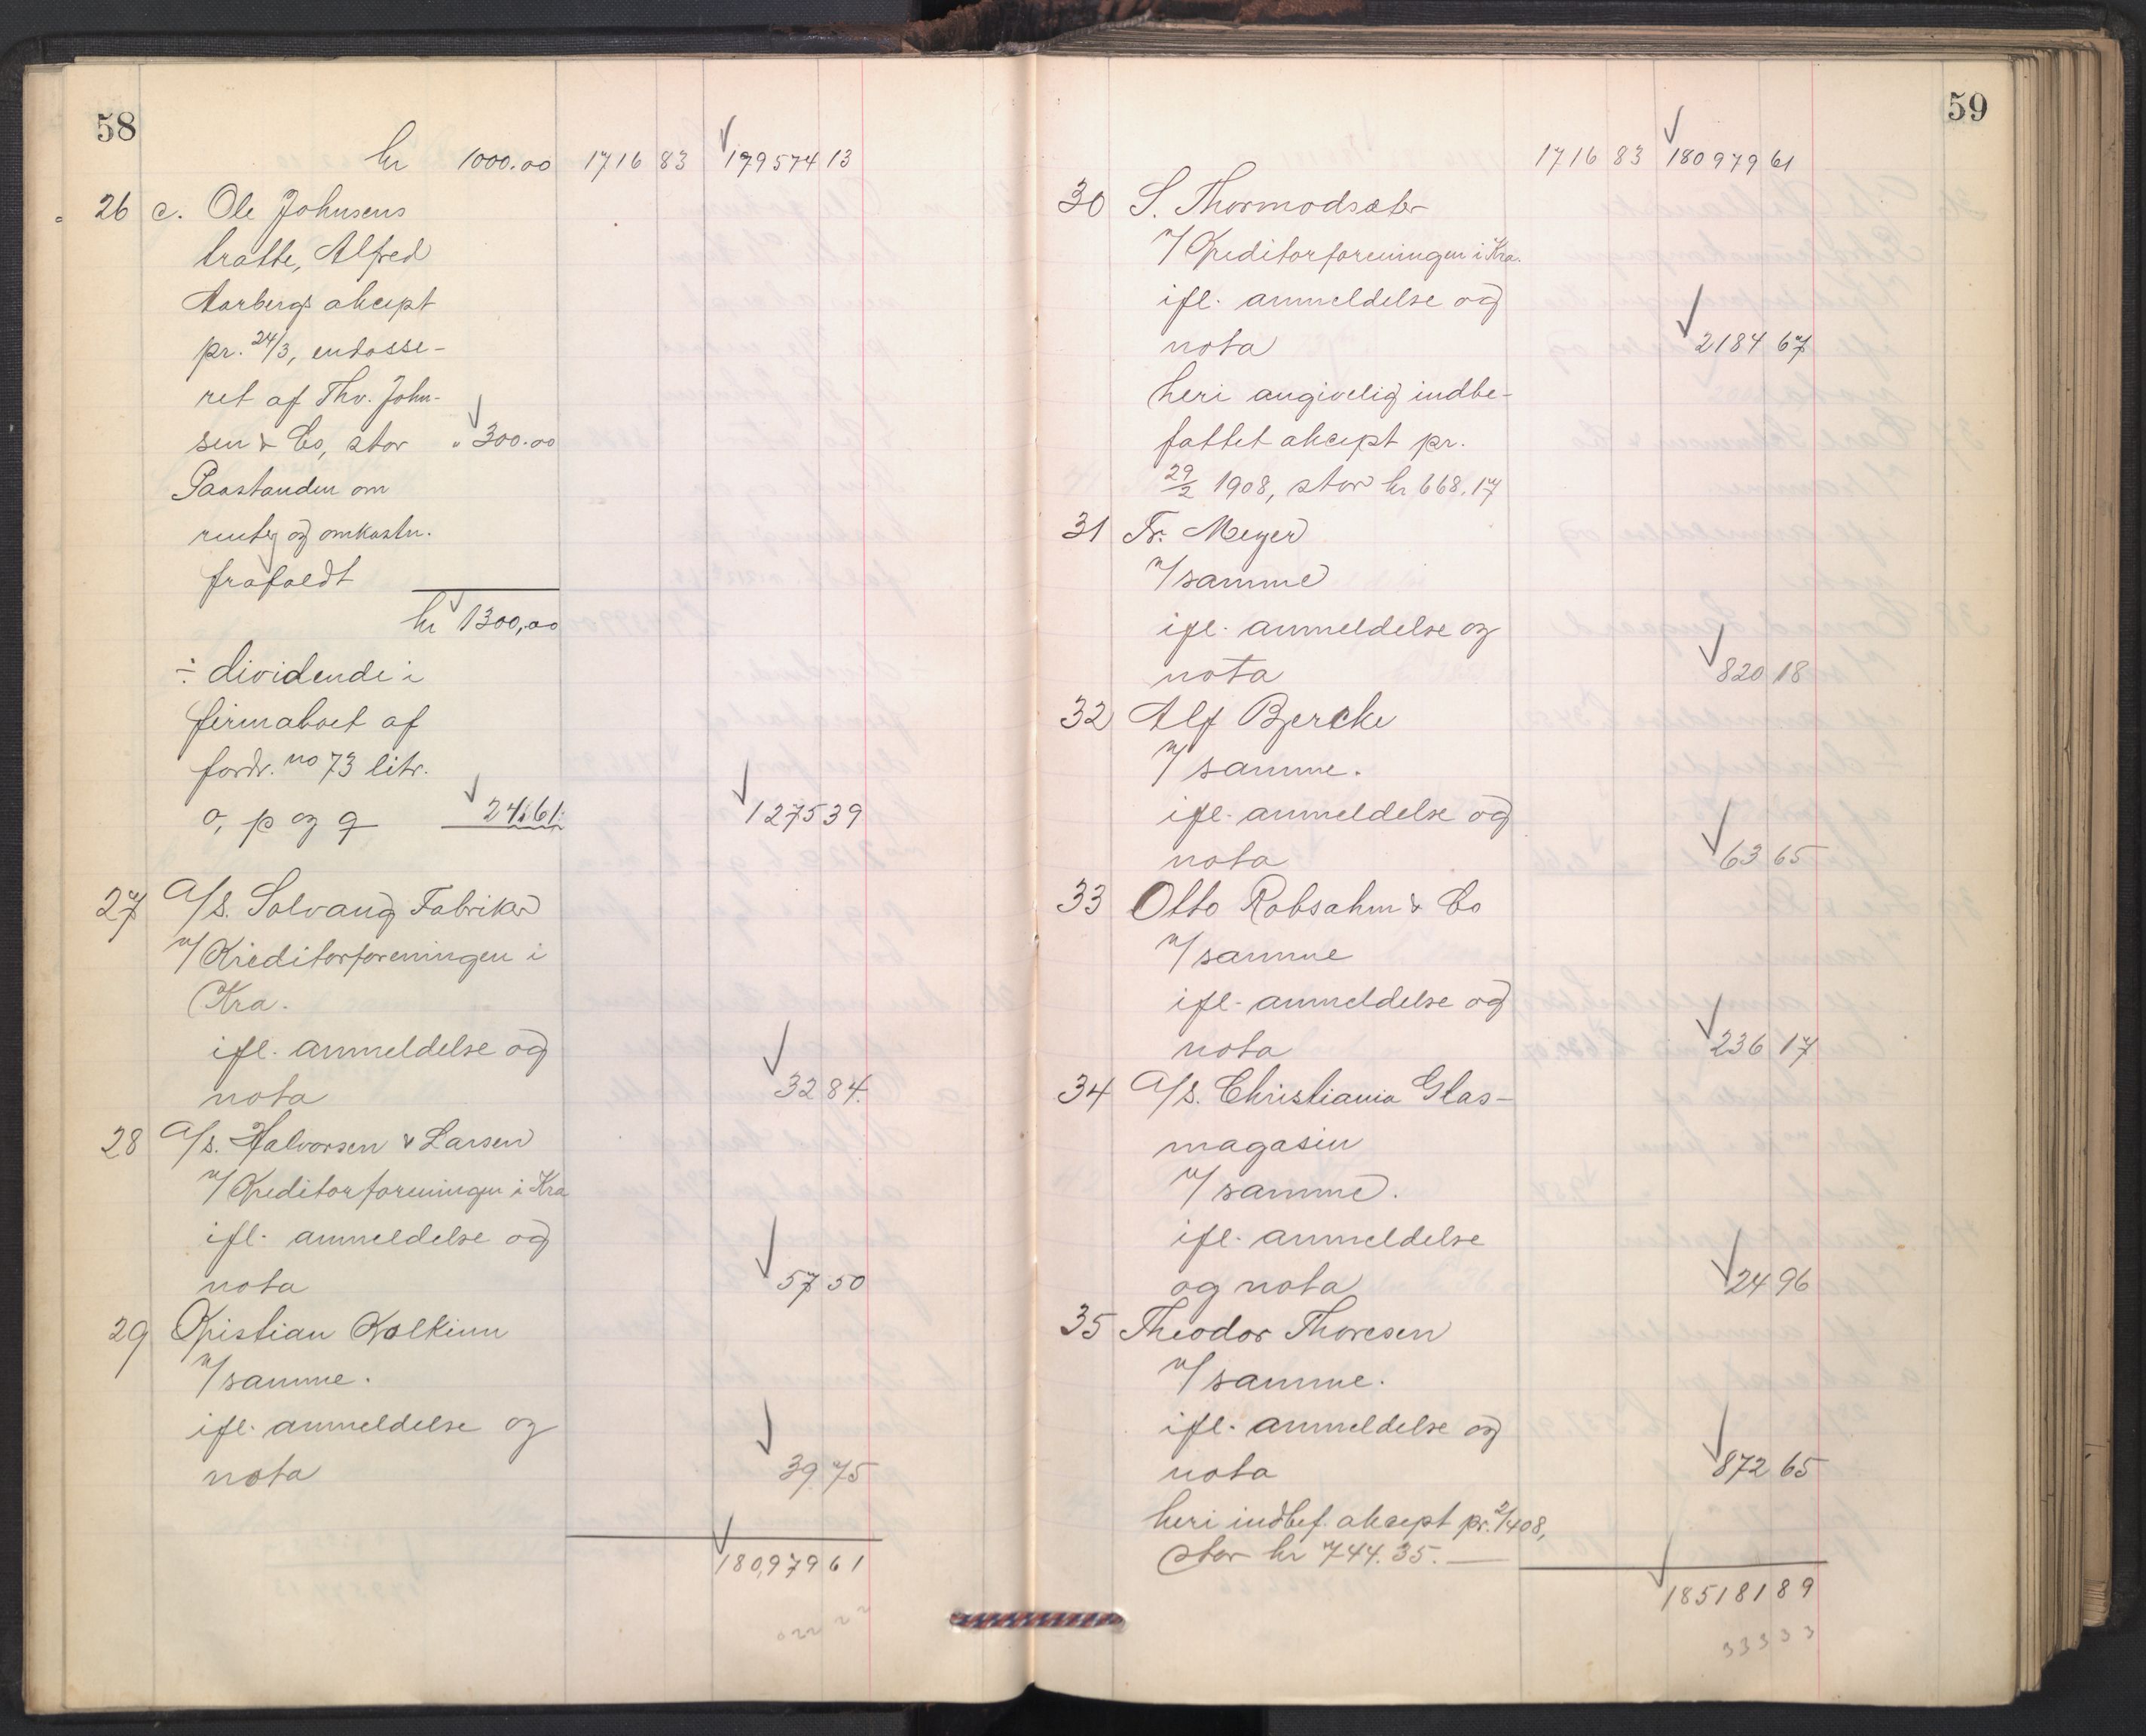 58
kr 1000.00 1716 83 179574 13
26 c. Ole Johnsens
tratte, Alfred
Aarbergs akcept
pr. 24/3, endosse-
ret af Thv. John-
sen & Co, stor " 300.00
Paastanden om
renter og omkostn.
frafaldt
kr 1300,00
÷ dividende i
firmaboet af
fordr. no 73 litr.
o, p og q 24.61 1275 39
27 A/s. Solvang Fabriker
v/ Kreditorforeningen i
Kra.
ifl. anmeldelse og
nota 32 84.
28 A/s. Halvorsen & Larsen
v/ Kreditorforeningen i Kra
ifl. anmeldelse og
nota 57 50
29 Kristian Kolkinn
v/ samme.
ifl. anmeldelse og
nota 39.75
180,979 61
59
1716 83 180979 61
30 S. Thormodsæter
v/ Kreditorforeningen i Kra.
ifl. anmeldelse og
nota 2184 67
heri angivelig indbe-
fattet akcept pr.
29/2 1908, stor kr 668.17
31 Fr. Meyer
v/ samme
ifl. anmeldelse og
nota 820 18
32 Alf Bjercke
v/ samme.
ifl. anmeldelse og
nota 63 65
33 Otto Robsahm & Co
v/ samme
ifl. anmeldelse og
nota 236 17
34 A/s. Christiania Glas-
magasin
v/ samme.
ifl. anmeldelse
og nota 24 96
35 Theodor Thoresen
v/ samme.
ifl. anmeldelse og
nota 872 65
heri indbef. akcept pr. 2/4 08,
stor kr 744.35.
185181 89
33333